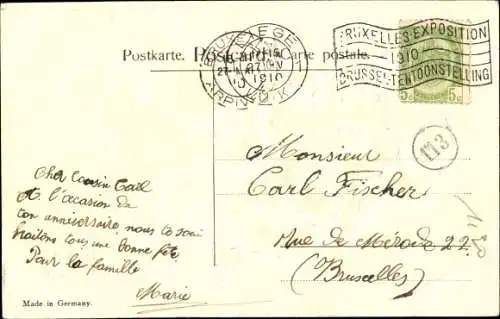 Postkarte. Postcard. Carte postale.
1910
BRUXELLES-EXPOSITION
1910
BRUSSEL-TENTOONSTELLING
5c 5c
113
Monsieur
Carl Fischer
Rue de Mérode 22
(Bruxelles)
Cher Cousin Carl
A l'occasion de
ton anniversaire nous te sou
haitons tous une bonne fête
Pour la famille
Marie
Made in Germany.